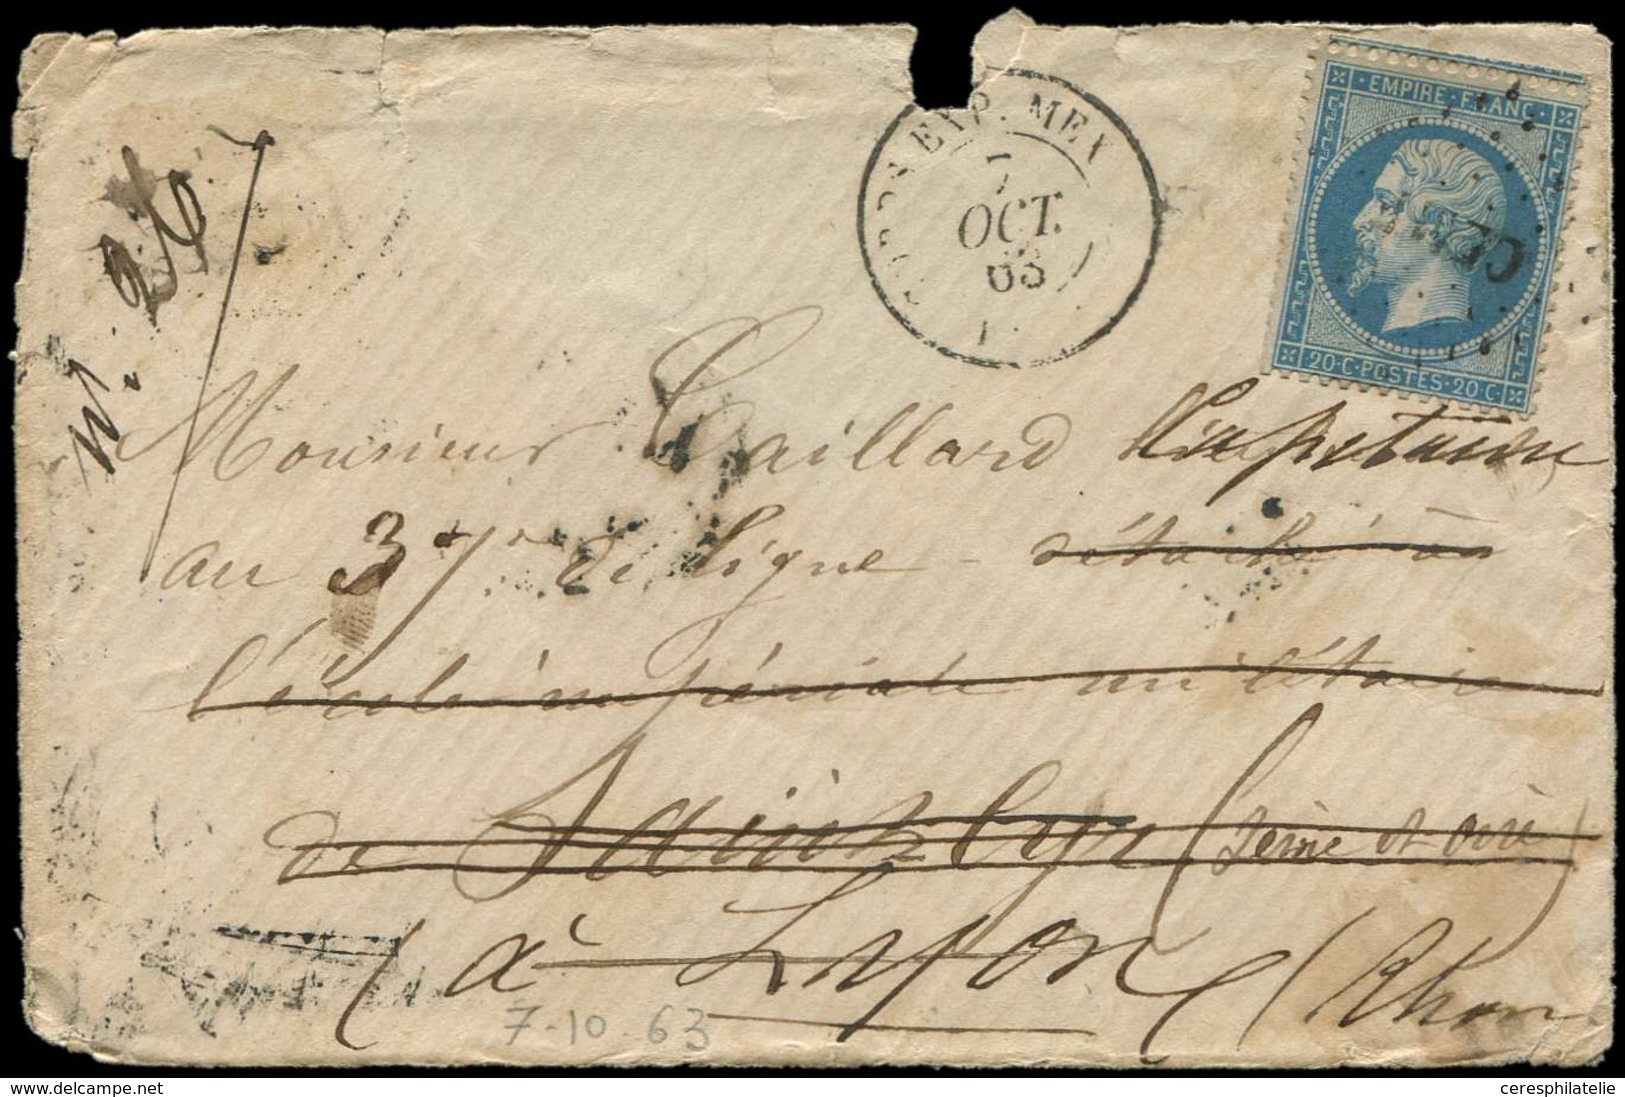 EXP. MEX
7
OCT.
63
1
EMPIRE · FRANC
20 · C · POSTES · 20 C
CEM
Monsieur Caillard Capitaine
au 37e de ligne – détaché à
l'école impériale militaire
de Saint Cyr (Seine et oise)
à Lyon (Rhône
7-10-63
www.delcampe.net
ceresphilatelie